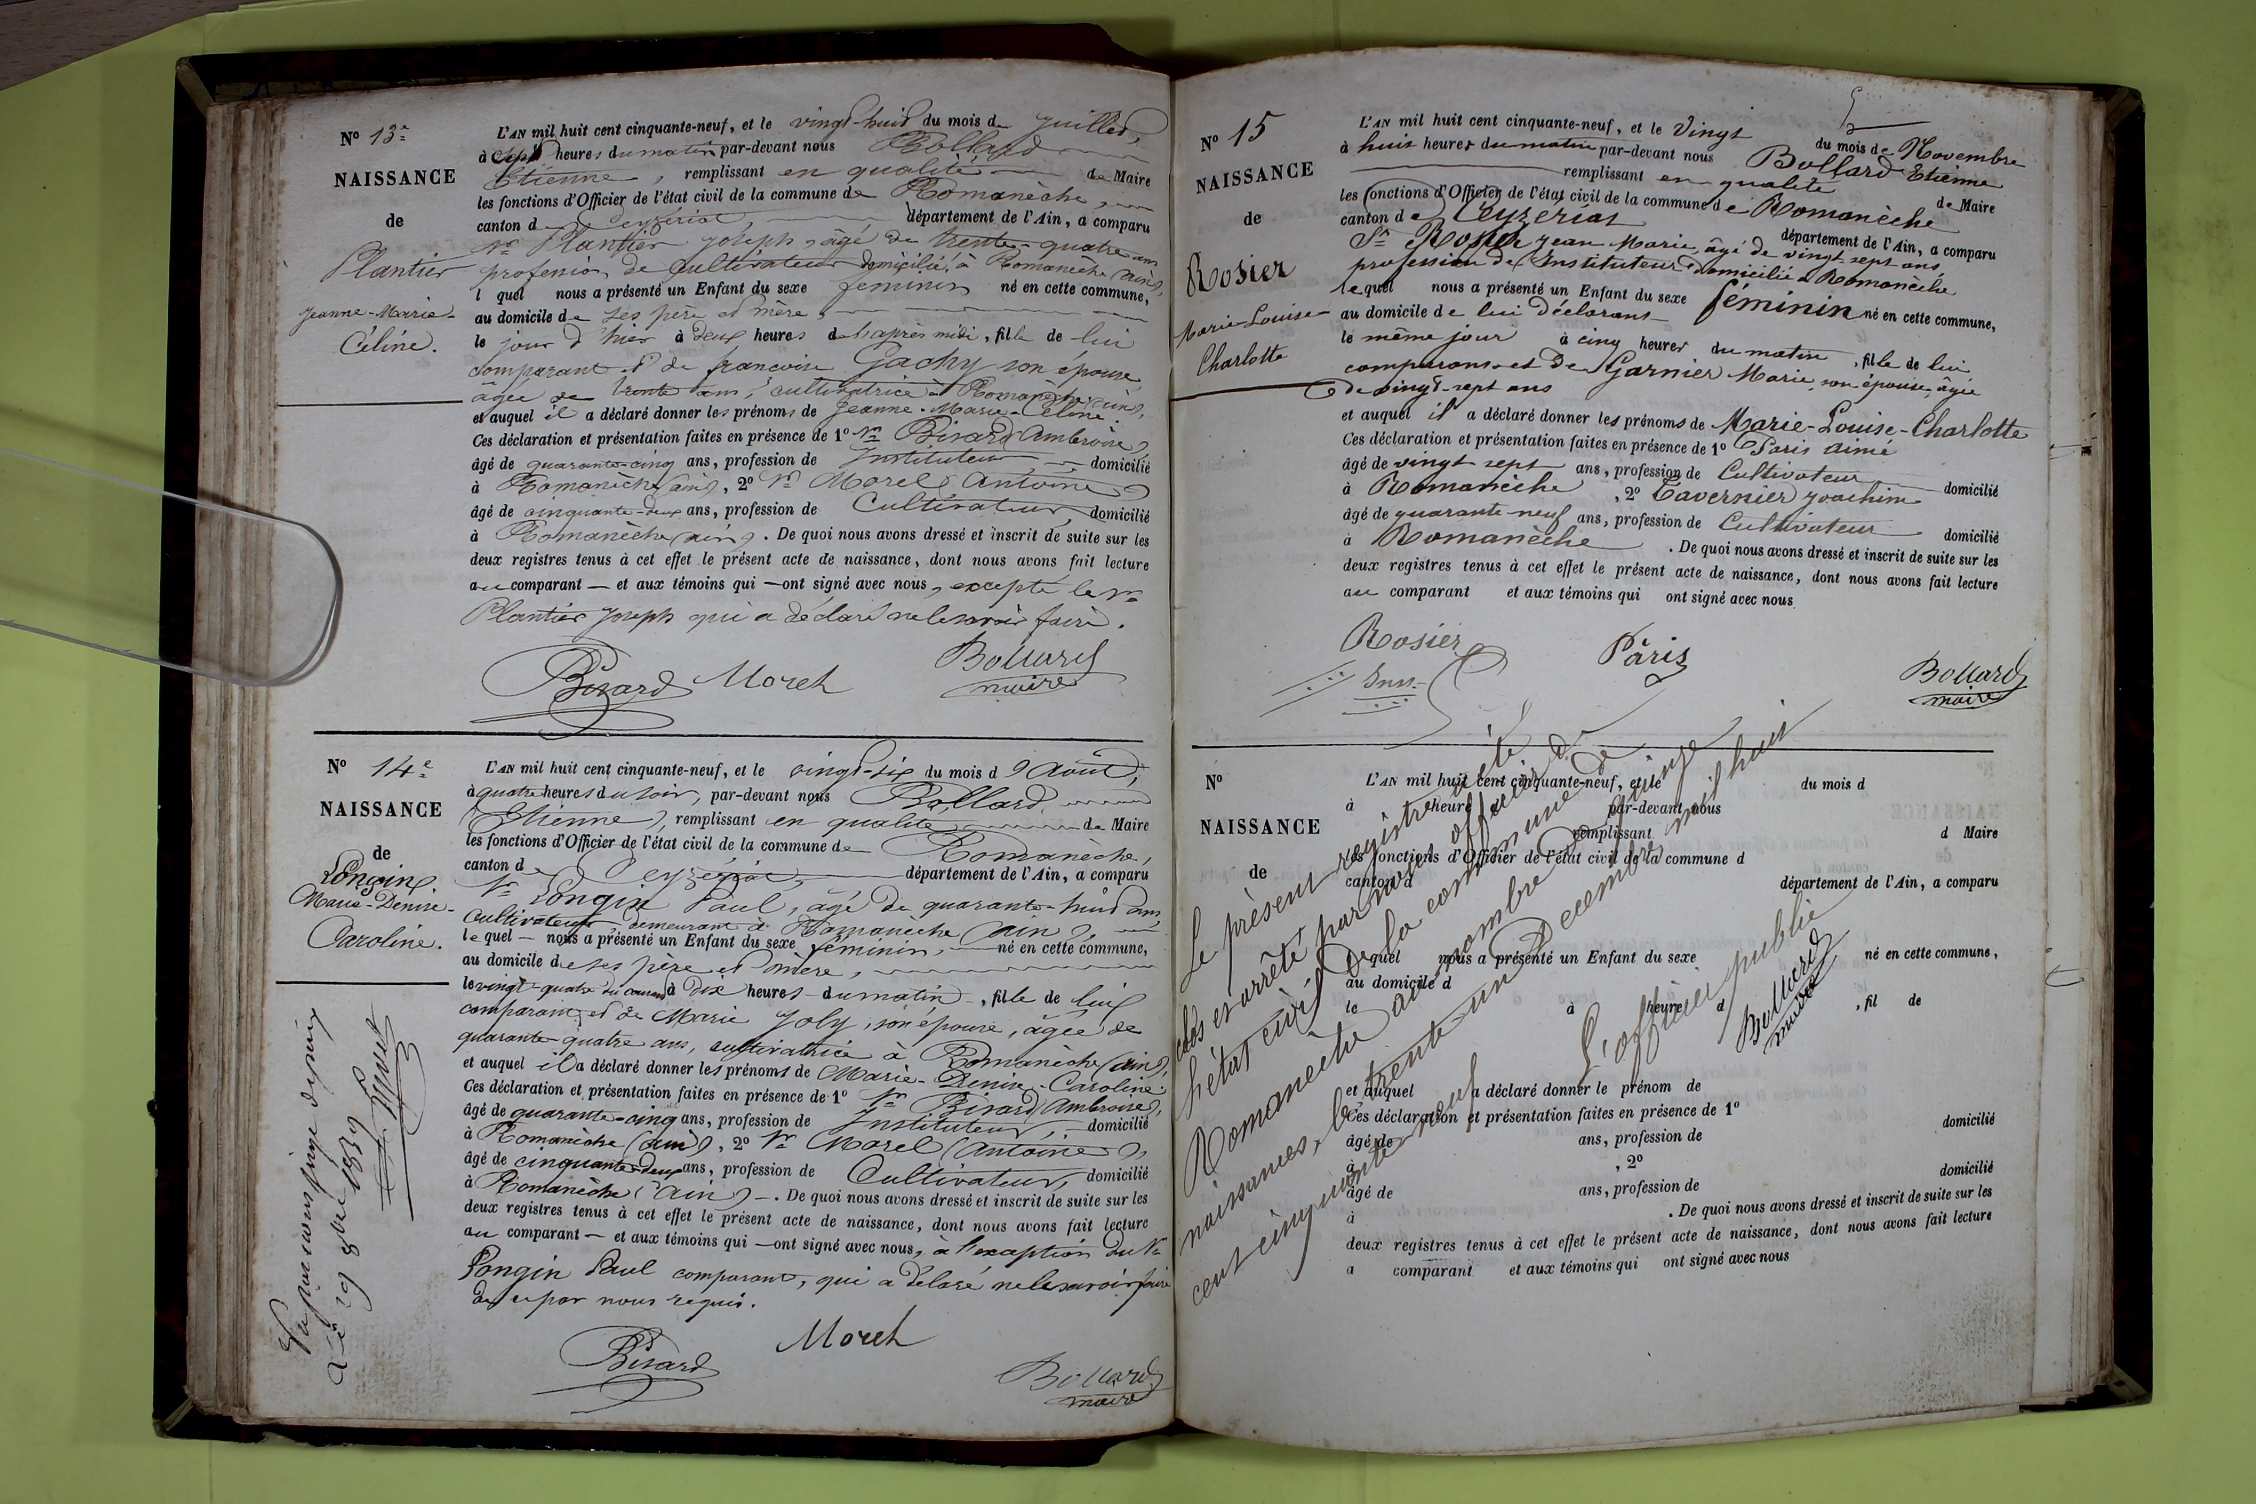 N° 13e
NAISSANCE
de
Plantier
Jeanne-Marie-
Céline.
L'AN mil huit cent cinquante-neuf, et le vingt-huit du mois de Juillet,
à sept heures du matin par-devant nous Bollard
Etienne, remplissant en qualité de Maire
les fonctions d'Officier de l'état civil de la commune de Romanèche,
canton de Ceyzériat, département de l'Ain, a comparu
Sr Plantier Joseph, âgé de trente-quatre ans
profession de Cultivateur domicilié à Romanèche (ain),
lequel nous a présenté un Enfant du sexe féminin né en cette commune,
au domicile de ses père et mère,
le jour d'hier à deux heures de l'après midi, fille de lui
comparant et de francoise Gachy son épouse
âgée de trente ans, cultivatrice à Romanèche (ain),
et auquel il a déclaré donner les prénoms de Jeanne-Marie-Céline.
Ces déclaration et présentation faites en présence de 1° Sr Birard (Ambroise)
âgé de quarante-cinq ans, profession de Instituteur domicilié
à Romanèche (ain), 2° Sr Morel (Antoine)
âgé de cinquante-deux ans, profession de Cultivateur, domicilié
à Romanèche (ain). De quoi nous avons dressé et inscrit de suite sur les
deux registres tenus à cet effet le présent acte de naissance, dont nous avons fait lecture
au comparant — et aux témoins qui — ont signé avec nous, excepté le Sr
Plantier Joseph qui a déclaré ne le savoir faire.
Birard Morel Bollard
maire
N° 14e
NAISSANCE
de
Longin
Marie-Denise-
Caroline.
L'AN mil huit cent cinquante-neuf, et le vingt-six du mois d'Août,
à quatre heures du soir, par-devant nous Bollard
(Etienne), remplissant en qualité de Maire
les fonctions d'Officier de l'état civil de la commune de Romanèche,
canton de Ceyzériat, département de l'Ain, a comparu
Sr Longin Paul, âgé de quarante-huit ans,
Cultivateur, demeurant à Romanèche (ain),
lequel — nous a présenté un Enfant du sexe féminin, né en cette commune,
au domicile de ses père et mère,
le vingt-quatre du courant à dix heures du matin, fille de lui
comparant et de Marie Joly, son épouse, âgée de
quarante-quatre ans, cultivatrice à Romanèche (ain),
et auquel il a déclaré donner les prénoms de Marie-Denise-Caroline.
Ces déclaration et présentation faites en présence de 1° Sr Birard (Ambroise),
âgé de quarante-cinq ans, profession de Instituteur, domicilié
à Romanèche (ain), 2° Sr Morel (Antoine),
âgé de cinquante-deux ans, profession de Cultivateur, domicilié
à Romanèche (ain) —. De quoi nous avons dressé et inscrit de suite sur les
deux registres tenus à cet effet le présent acte de naissance, dont nous avons fait lecture
au comparant — et aux témoins qui — ont signé avec nous, à l'exception du Sr
Longin Paul comparant, qui a déclaré ne le savoir faire
de ce par nous requis.
Birard Morel Bollard
maire
Vu par nous juge
à 29 8bre 1859
N° 15
NAISSANCE
de
Rosier
Marie-Louise-
Charlotte
L'AN mil huit cent cinquante-neuf, et le Vingt du mois de Novembre
à huit heures du matin par-devant nous Bollard Etienne
remplissant en qualité de Maire
les fonctions d'Officier de l'état civil de la commune de Romanèche
canton de Ceyzeriat département de l'Ain, a comparu
Sr Rosier Jean Marie, âgé de vingt-sept ans,
profession de Instituteur domicilié à Romanèche
lequel nous a présenté un Enfant du sexe féminin né en cette commune,
au domicile de lui Déclarant
le même jour à cinq heures du matin, fille de lui
comparant et de Garnier Marie, son épouse, âgée
de vingt-sept ans
et auquel il a déclaré donner les prénoms de Marie-Louise-Charlotte
Ces déclaration et présentation faites en présence de 1° Paris aimé
âgé de vingt sept ans, profession de Cultivateur domicilié
à Romanèche, 2° Tavernier Joachim
âgé de quarante-neuf ans, profession de Cultivateur domicilié
à Romanèche. De quoi nous avons dressé et inscrit de suite sur les
deux registres tenus à cet effet le présent acte de naissance, dont nous avons fait lecture
au comparant et aux témoins qui ont signé avec nous
Rosier Pâris Bollard
Inst. maire
N°
NAISSANCE
de
L'AN mil huit cent cinquante-neuf, et le du mois d
à heure par-devant nous
remplissant d Maire
les fonctions d'Officier de l'état civil de la commune d
canton d département de l'Ain, a comparu
l quel nous a présenté un Enfant du sexe né en cette commune,
au domicile d
le à heure d , fil de
et auquel a déclaré donner le prénom de
Ces déclaration et présentation faites en présence de 1°
âgé de ans, profession de domicilié
à , 2°
âgé de ans, profession de domicilié
à . De quoi nous avons dressé et inscrit de suite sur les
deux registres tenus à cet effet le présent acte de naissance, dont nous avons fait lecture
a comparant et aux témoins qui ont signé avec nous
Le présent registre a été
clos et arrêté par nous officier de
l'état civil de la commune de
Romanèche au nombre de quinze
naissances, le trente-un Décembre mil huit
cent cinquante-neuf
L'officier public
Bollard
maire